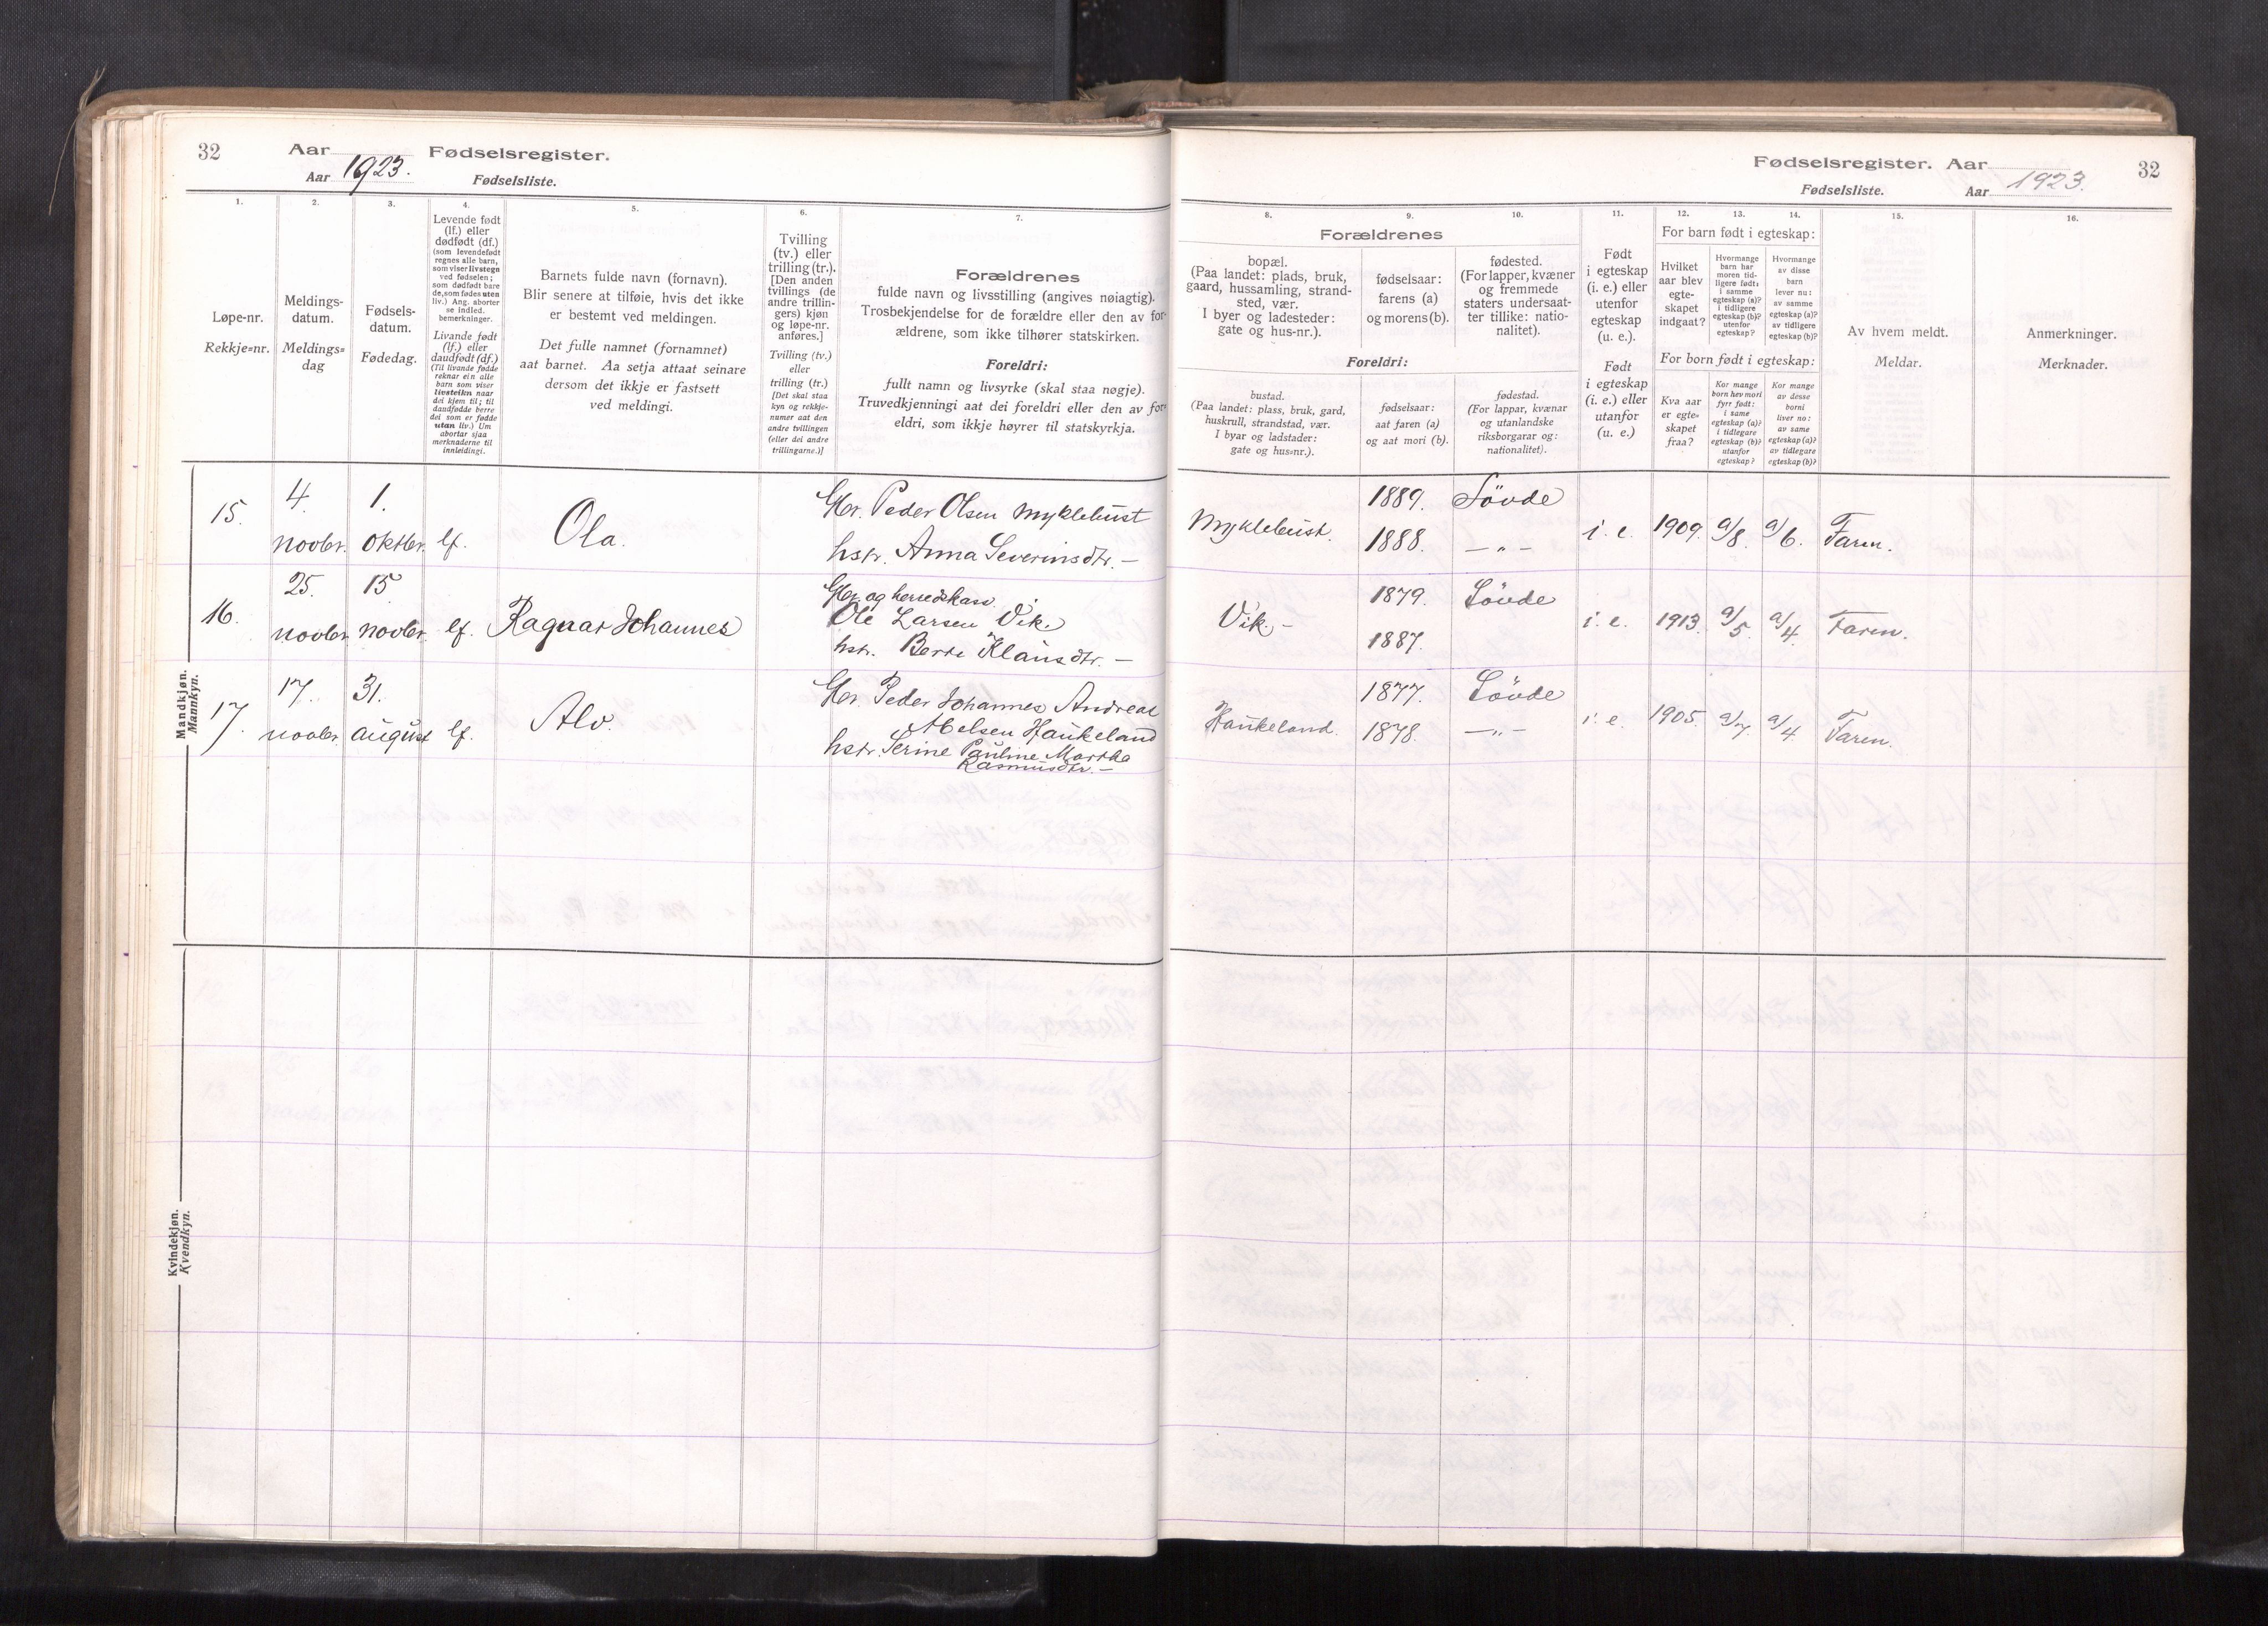 32 Aar Fødselsregister.
Aar 1923. Fødselsliste.
1. 2. 3. 4. 5. 6. 7.
Løpe-nr.
Rekkje=nr.
Meldings-
datum.
Meldings=
dag
Fødsels-
datum.
Fødedag.
Levende født
(lf.) eller
dødfødt (df.)
(som levendefødt
regnes alle barn,
som viser livstegn
ved fødselen;
som dødfødt bare
de, som fødes uten
liv.) Ang. aborter
se indled.
bemerkninger.
Livande født
(lf.) eller
daudfødt (df.)
(Til livande fødde
reknar ein alle
barn som viser
livsteikn naar
dei kjem til; til
daudfødde berre
dei som er fødde
utan liv.) Um
abortar sjaa
merknaderne til
innleidingi.
Barnets fulde navn (fornavn).
Blir senere at tilføie, hvis det ikke
er bestemt ved meldingen.
Det fulle namnet (fornamnet)
aat barnet. Aa setja attaat seinare
dersom det ikkje er fastsett
ved meldingi.
Tvilling
(tv.) eller
trilling (tr.).
[Den anden
tvillings (de
andre trillin-
gers) kjøn
og løpe-nr.
anføres.]
Tvilling (tv.)
eller
trilling (tr.)
[Det skal staa
kyn og rekkje-
numer aat den
andre tvillingen
(eller dei andre
trillingarne.)]
Forældrenes
fulde navn og livsstilling (angives nøiagtig).
Trosbekjendelse for de forældre eller den av for-
ældrene, som ikke tilhører statskirken.
Foreldri:
fullt namn og livsyrke (skal staa nøgje).
Truvedkjenningi aat dei foreldri eller den av for-
eldri, som ikkje høyrer til statskyrkja.
Mandkjøn.
Mannkyn.
15. 4. novbr. 1. oktbr. lf. Ola.
Gbr. Peder Olsen Myklebust
hstr. Anna Severinsdtr. —
16. 25. novbr. 15 novbr. lf. Ragnar Johannes
Gbr. og herredskass.
Ole Larsen Vik.
hstr. Berte Klausdtr. —
17. 17. novbr. 31. august lf. Alv.
Gbr. Peder Johannes Andreas
Abelsen Haukeland
hstr. Serine Pauline Martha
Rasmusdtr. —
Kvindekjøn.
Kvendkyn.
Fødselsregister. Aar 32
Fødselsliste. Aar 1923.
8. 9. 10. 11. 12. 13. 14. 15. 16.
Forældrenes
bopæl.
(Paa landet: plads, bruk,
gaard, hussamling, strand-
sted, vær.
I byer og ladesteder:
gate og hus-nr.).
fødselsaar:
farens (a)
og morens (b).
fødested.
(For lapper, kvæner
og fremmede
staters undersaat-
ter tillike: natio-
nalitet).
Foreldri:
bustad.
(Paa landet: plass, bruk, gard,
huskrull, strandstad, vær.
I byar og ladstader:
gate og hus=nr.).
fødselsaar:
aat faren (a)
og aat mori (b).
fødestad.
(For lappar, kvænar
og utanlandske
riksborgarar og:
nationalitet).
Født
i egteskap
(i. e.) eller
utenfor
egteskap
(u. e.).
Født
i egteskap
(i. e.) eller
utanfor
(u. e.)
For barn født i egteskap:
Hvilket
aar blev
egte-
skapet
indgaat?
Hvormange
barn har
moren tid-
ligere født:
i samme
egteskap (a)?
i tidligere
egteskap (b)?
utenfor
egteskap?
Hvormange
av disse
barn
lever nu:
av samme
egteskap (a)?
av tidligere
egteskap (b)?
For born født i egteskap:
Kva aar
er egte=
skapet
fraa?
Kor mange
born hev mori
fyrr født:
i same
egteskap (a)?
i tidlegare
egteskap (b)?
utanfor
egteskap?
Kor mange
av desse
borni
liver no:
av same
egteskap (a)?
av tidlegare
egteskap (b)?
Av hvem meldt.
Meldar.
Anmerkninger.
Merknader.
Myklebust. 1889. Sövde i. e. 1909. a/8. a/6. Faren.
1888. — „ —
Vik. — 1879. Sövde i. e. 1913. a/5. a/4. Faren.
1887.
Haukeland. 1877. Sövde i. e. 1905. a/7. a/4. Faren.
1878. — „ —